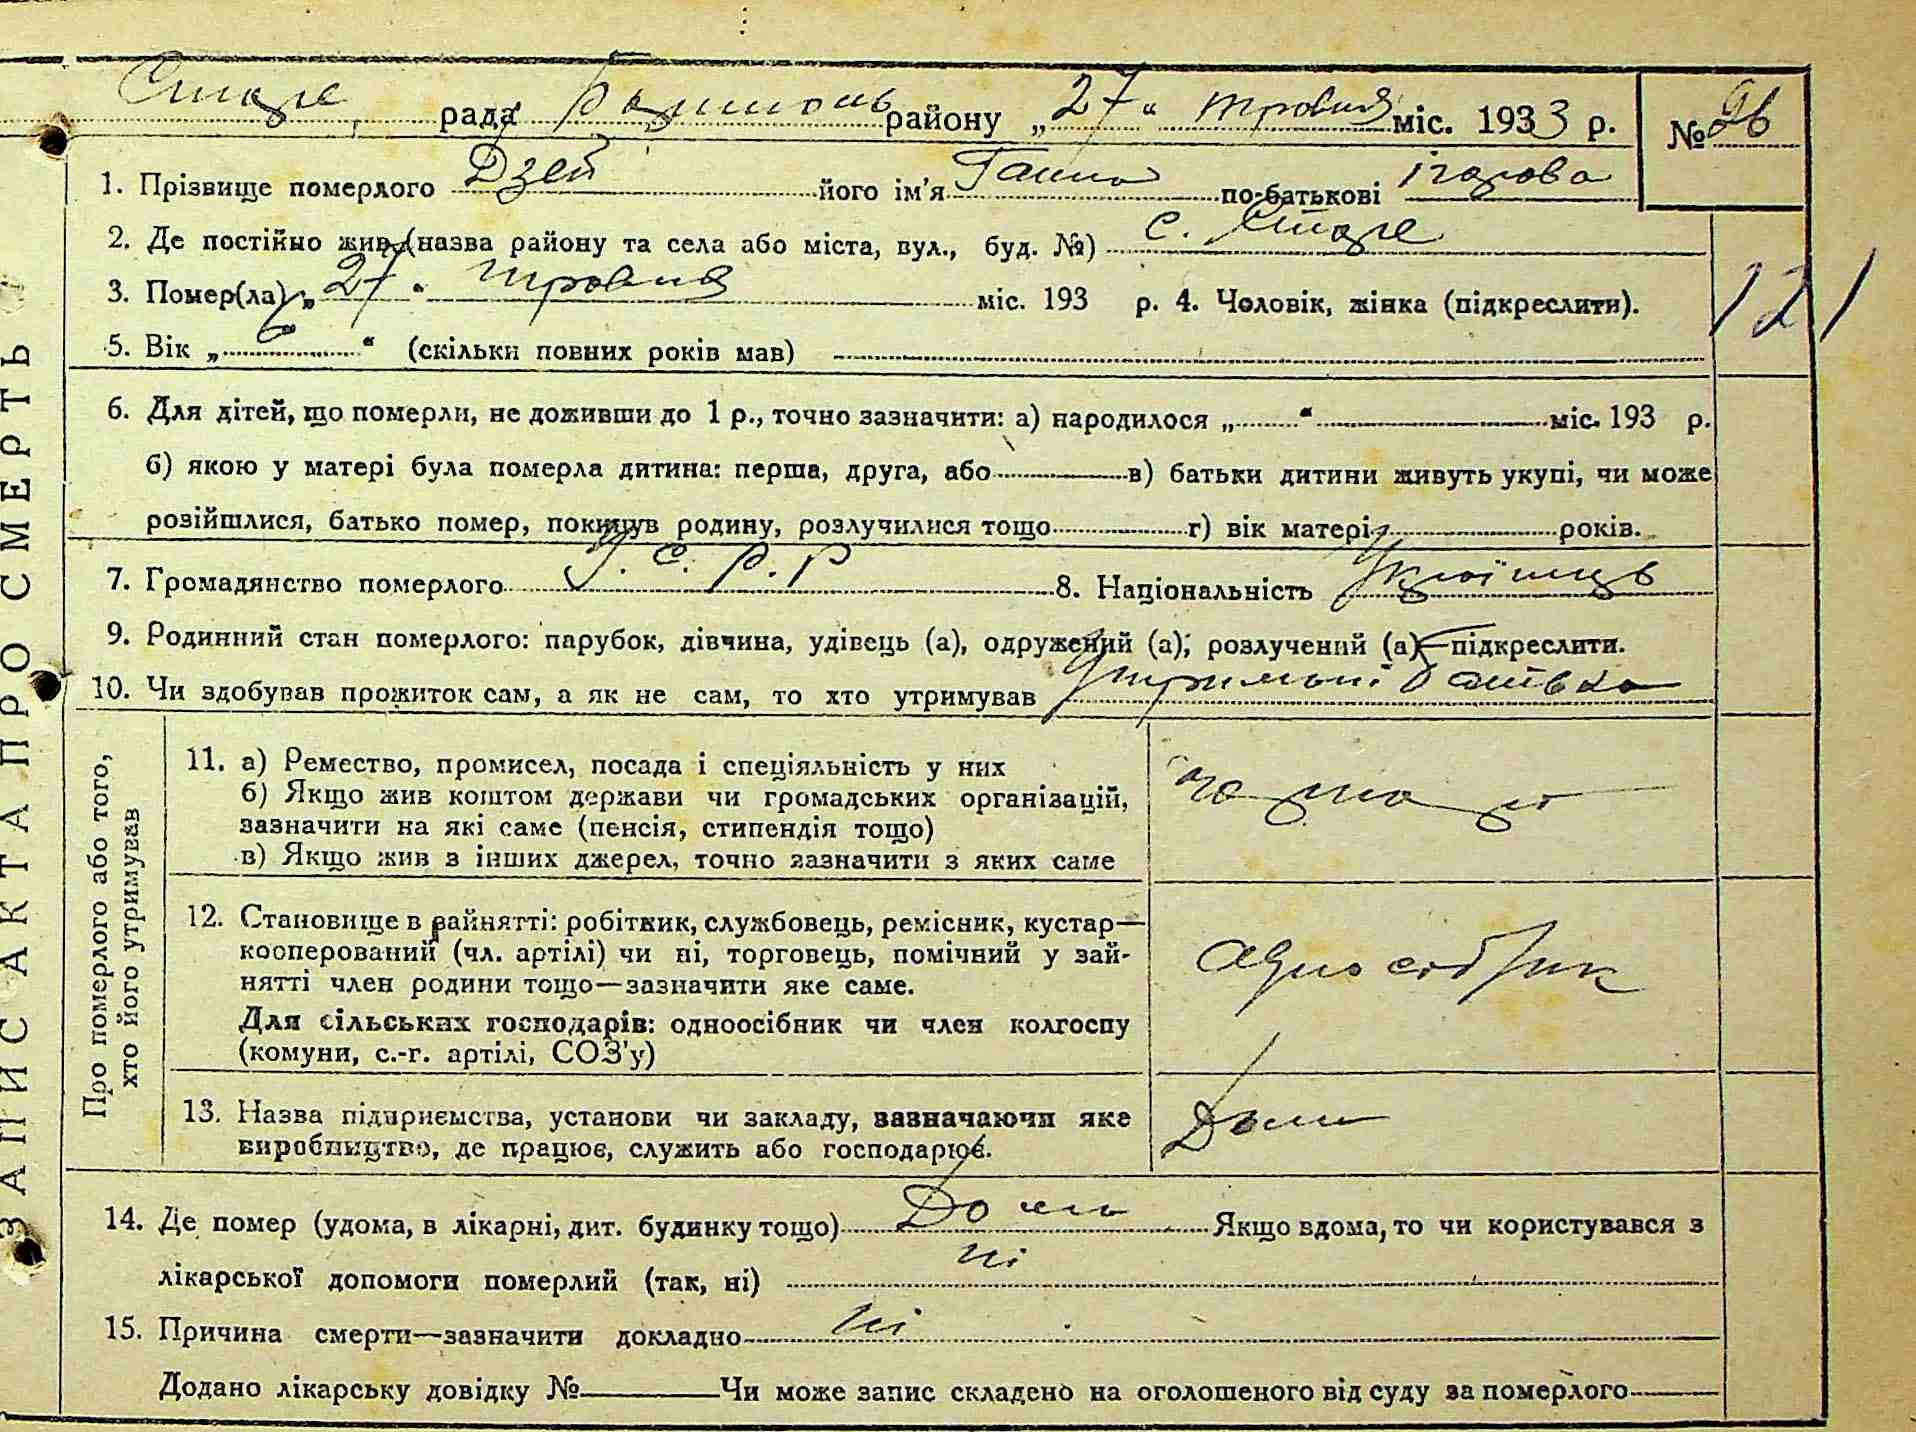 Старе рада район району „27“ травня міс. 1933 р. №
1. Прізвище померлого Дзей його ім'я Ганна по-батькові
2. Де постійно жив (назва району та села або міста, вул., буд. №) с. Старе
3. Помер(ла) „27“ травня міс. 193 р. 4. Чоловік, жінка (підкреслити).
121
5. Вік „6“ (скільки повних років мав)
6. Для дітей, що померли, не доживши до 1 р., точно зазначити: а) народилося „ “ міс. 193 р.
б) якою у матері була померла дитина: перша, друга, або в) батьки дитини живуть укупі, чи може
розійшлися, батько помер, покинув родину, розлучилися тощо г) вік матері років.
7. Громадянство померлого У.С.Р.Р 8. Національність Українць
9. Родинний стан померлого: парубок, дівчина, удівець (а), одружений (а), розлучений (а)—підкреслити.
10. Чи здобував прожиток сам, а як не сам, то хто утримував Утриманні батька
ЗАПИС АКТА ПРО СМЕРТЬ
Про померлого або того,
хто його утримував
11. а) Ремество, промисел, посада і спеціяльність у них
б) Якщо жив коштом держави чи громадських організацій,
зазначити на які саме (пенсія, стипендія тощо)
в) Якщо жив з інших джерел, точно зазначити з яких саме
12. Становище в зайнятті: робітник, службовець, ремісник, кустар—
кооперований (чл. артілі) чи ні, торговець, помічний у зай-
нятті член родини тощо—зазначити яке саме.
Для сільських господарів: одноосібник чи член колгоспу
(комуни, с.-г. артілі, СОЗ'у)
13. Назва підприємства, установи чи закладу, зазначаючи яке
виробництво, де працює, служить або господарює.
Дома
14. Де помер (удома, в лікарні, дит. будинку тощо) Дома Якщо вдома, то чи користувався з
лікарської допомоги померлий (так, ні) ні
15. Причина смерти—зазначити докладно ні
Додано лікарську довідку № Чи може запис складено на оголошеного від суду за померлого